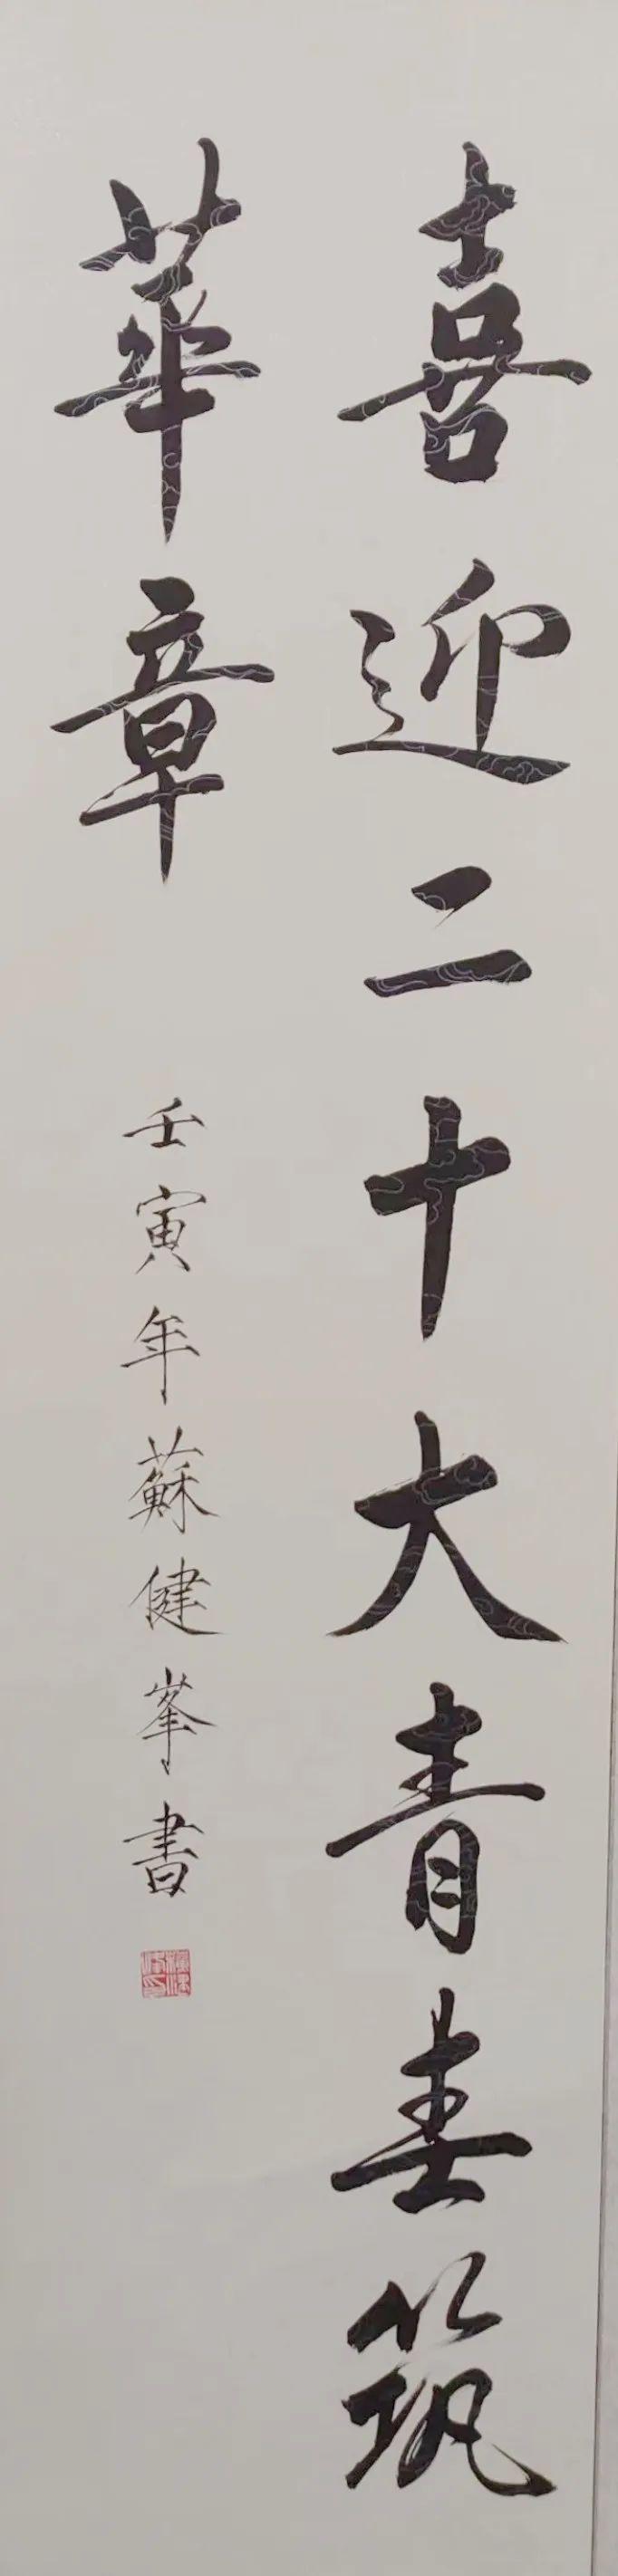 喜迎二十大青春筑
華章
壬寅年蘇健峯書